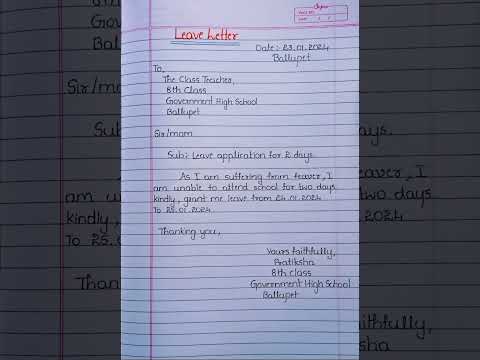 Leave Letter
Date: 23.01.2024
Ballupet
To,
The Class Teacher,
8th Class
Government High School
Ballupet
Sir/mam
Sub: Leave application for 2 days.
As I am suffering from feaver, I
am unable to attend school for two days
kindly, grant me leave from 24.01.2024
To 25.01.2024
Thanking you,
Yours faithfully,
Pratiksha
8th Class
Government High School
Ballupet